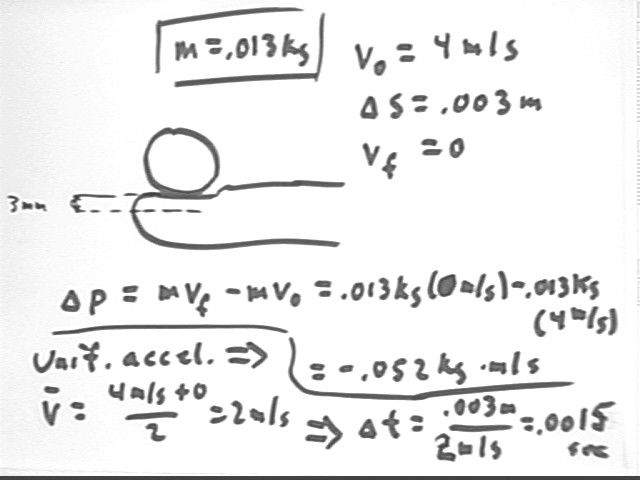 m = .013 kg
v₀ = 4 m/s
Δs = .003 m
v_f = 0
3 mm
Δp = mv_f - mv₀ = .013 kg (0 m/s) - .013 kg (4 m/s)
= -.052 kg · m/s
Unif. accel. ⇒
v̄ = (4 m/s + 0)/2 = 2 m/s ⇒ Δt = .003 m / 2 m/s = .0015 sec